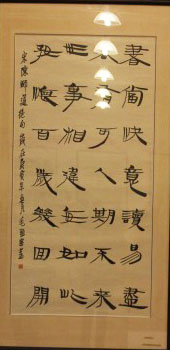 書當快意讀易盡
客有可人期不來
世事相違每如此
好懷百歲幾回開
宋陳師道絕句歲在